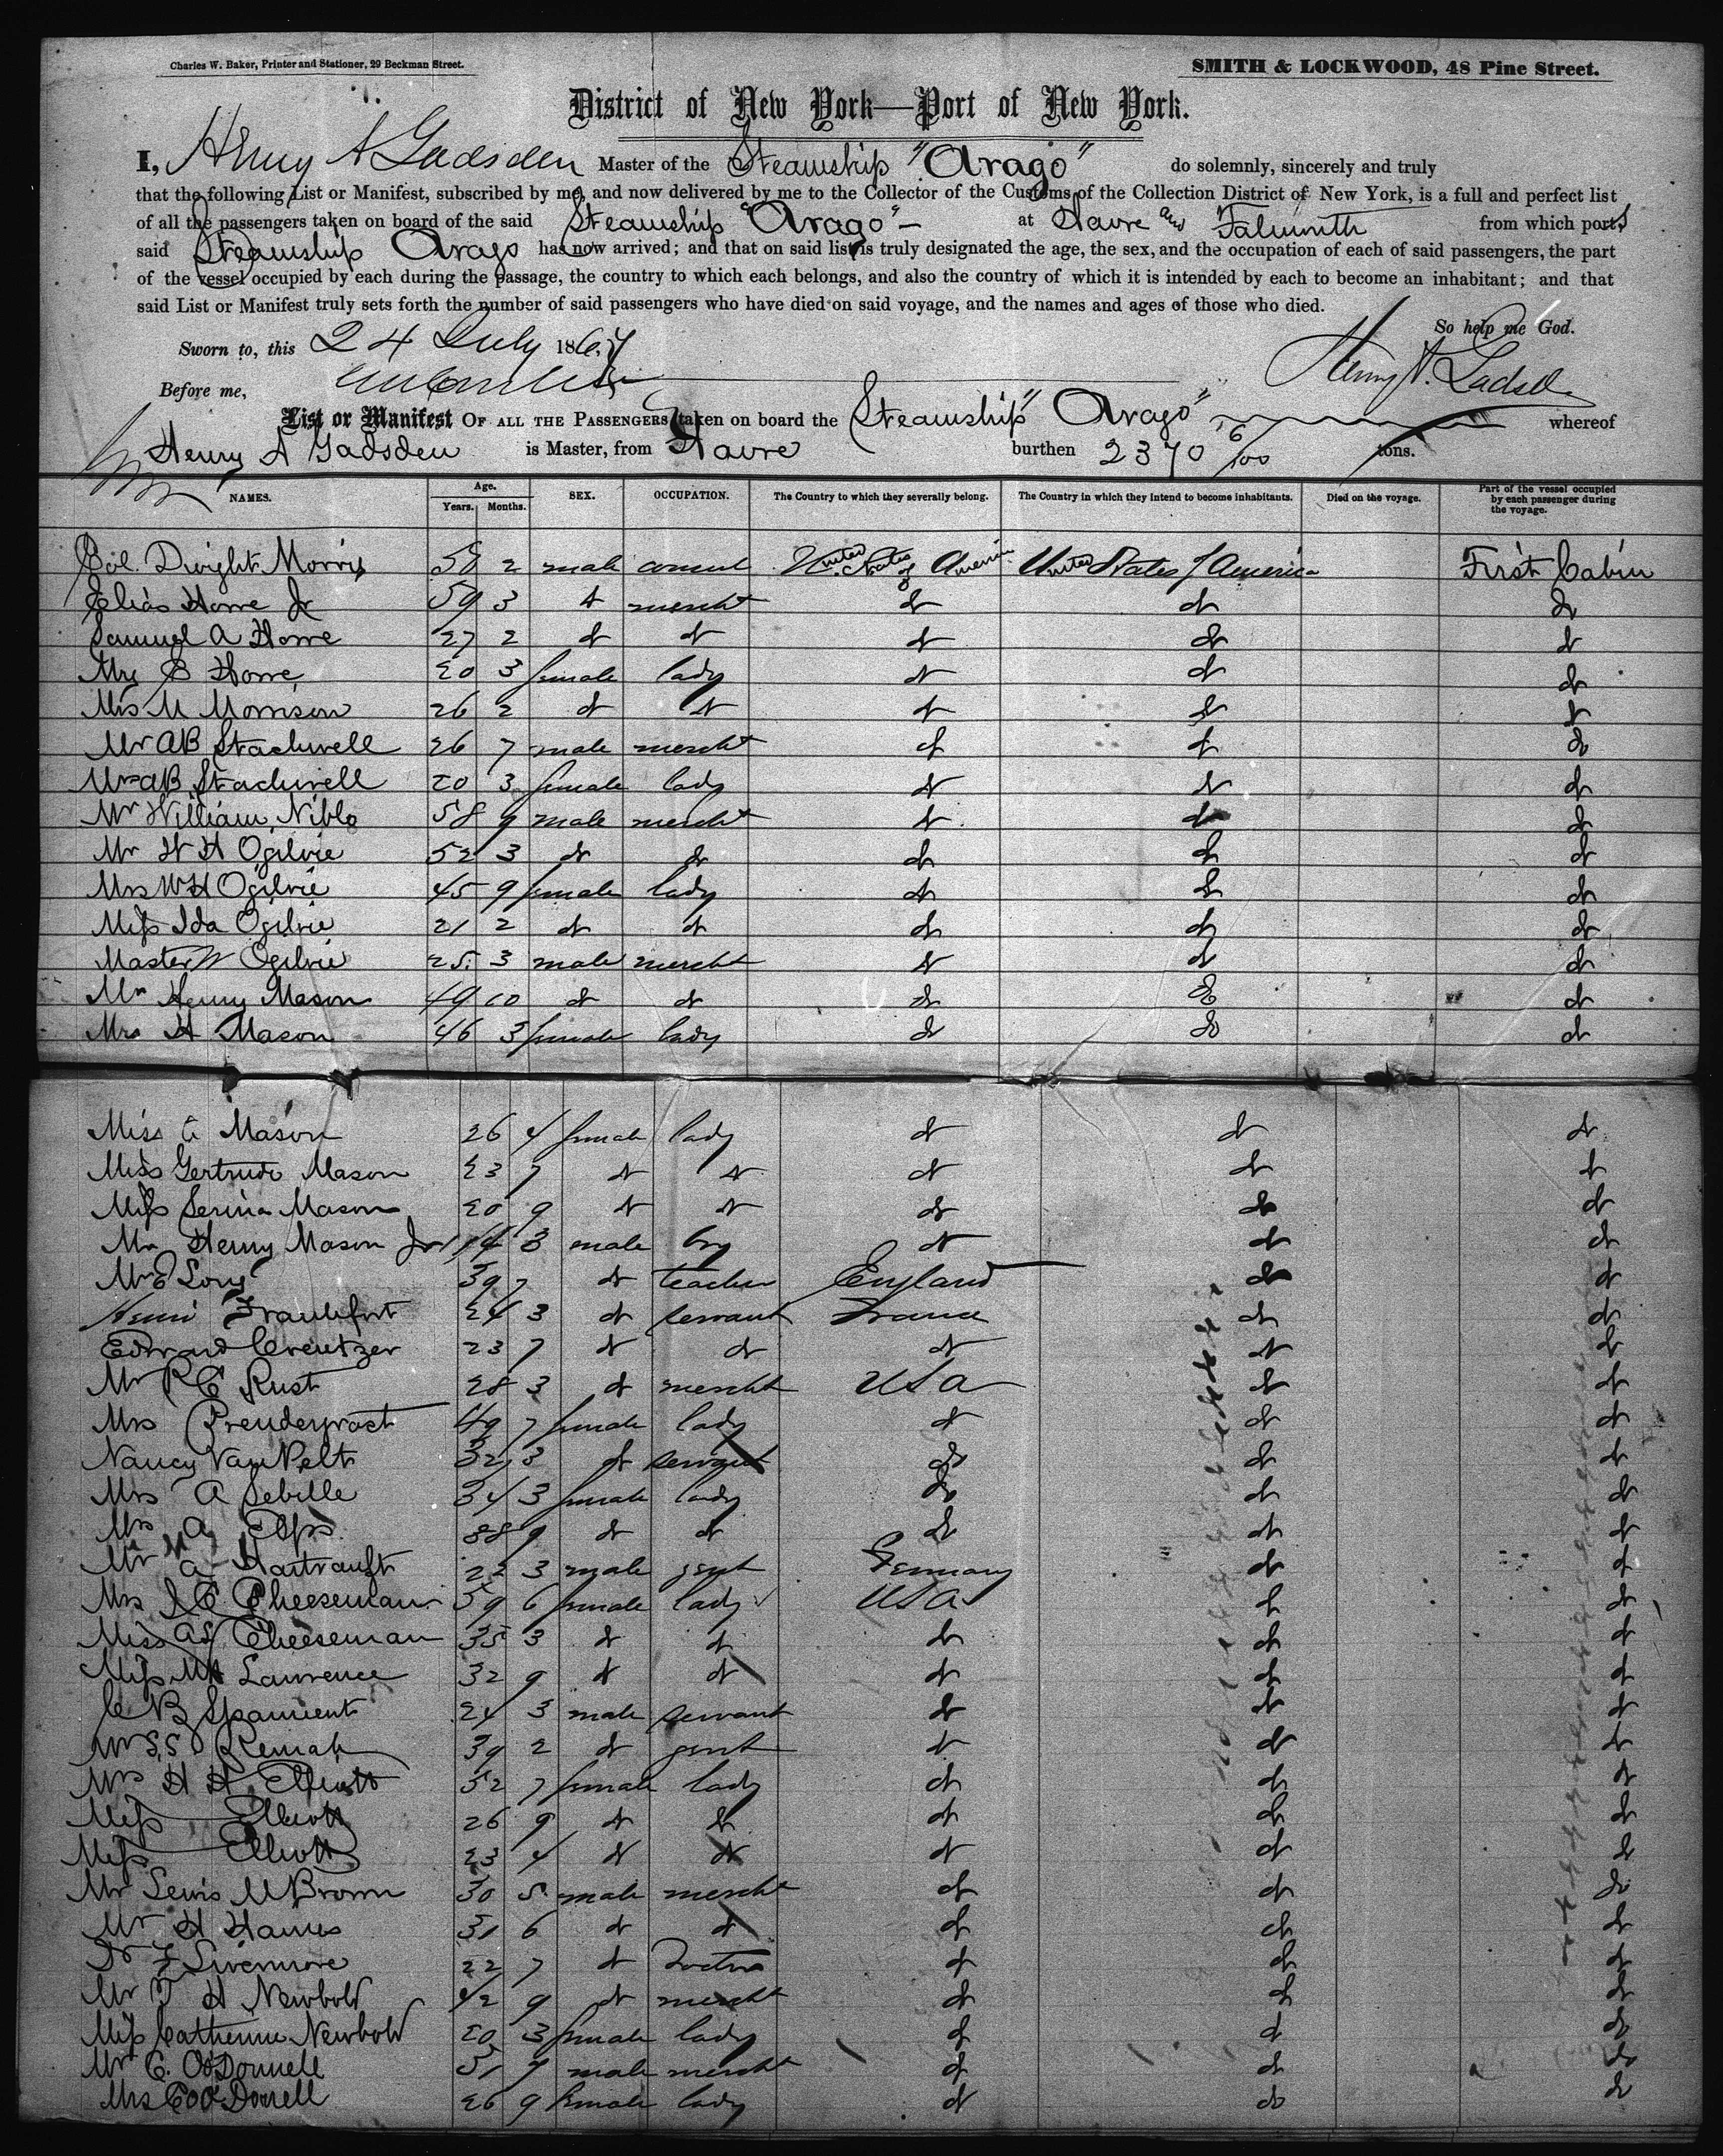 Charles W. Baker, Printer and Stationer, 29 Beekman Street.
SMITH & LOCKWOOD, 48 Pine Street.
District of New York—Port of New York.
I, Henry A Gadsden Master of the Steamship "Arago" do solemnly, sincerely and truly
that the following List or Manifest, subscribed by me, and now delivered by me to the Collector of the Customs of the Collection District of New York, is a full and perfect list
of all the passengers taken on board of the said Steamship "Arago" – at Havre and Falmouth from which ports
said Steamship Arago has now arrived; and that on said list is truly designated the age, the sex, and the occupation of each of said passengers, the part
of the vessel occupied by each during the passage, the country to which each belongs, and also the country of which it is intended by each to become an inhabitant; and that
said List or Manifest truly sets forth the number of said passengers who have died on said voyage, and the names and ages of those who died.
So help me God.
Sworn to, this 24 July 1867
Henry A. Gadsden
Before me,
List or Manifest OF ALL THE PASSENGERS taken on board the Steamship "Arago" whereof
Henry A Gadsden is Master, from Havre burthen 2370 76/100 tons.
NAMES. Age. Years. Months. SEX. OCCUPATION. The Country to which they severally belong. The Country in which they intend to become inhabitants. Died on the voyage. Part of the vessel occupied by each passenger during the voyage.
Col. Dwight Morris 50 2 male consul United States of America United States of America First Cabin
Elias Howe Jr 59 3 do mercht do do do
Samuel A Howe 27 2 do do do do do
Mrs S Howe 20 3 female lady do do do
Mrs M Morrison 26 2 do do do do do
Mr AB Stackwell 26 7 male mercht do do do
Mrs AB Stackwell 20 3 female lady do do do
Mr William Niblo 58 9 male mercht do do do
Mr W H Ogilvie 52 3 do do do do do
Mrs WH Ogilvie 45 9 female lady do do do
Miss Ida Ogilvie 21 2 do do do do do
Master W Ogilvie 25 3 male mercht do do do
Mr Henry Mason 49 10 do do do do do
Mrs H Mason 46 3 female lady do do do
Miss Mason 26 4 female lady do do do
Miss Gertrude Mason 23 7 do do do do do
Miss Serina Mason 20 9 do do do do do
Mr Henry Mason Jr 14 3 male boy do do do
Mr Long 39 7 do teacher England do do
Henri Frankfort 24 3 do servant France do do
Edward Creutzer 23 7 do do do do do
Mr R C Rust 28 3 do mercht USA do do
Mrs Prendergast 49 7 female lady do do do
Nancy Van Pelt 32 3 do servant do do do
Mrs A Sebille 34 3 female lady do do do
Mrs A 38 9 do do do do do
Mr A Hartrauft 22 3 male gent Germany do do
Mrs J C Cheeseman 59 6 female lady USA do do
Miss AS Cheeseman 35 3 do do do do do
Miss MA Lawrence 32 9 do do do do do
C B 24 3 male servant do do do
Mr S.S. Remak 39 2 do gent do do do
Mrs H H Elliott 52 7 female lady do do do
Miss Elliott 26 9 do do do do do
Miss Elliott 23 4 do do do do do
Mr Lewis M Brown 30 5 male mercht do do do
Mr H Hames 31 6 do do do do do
Dr Livermore 22 7 do Doctor do do do
Mr T H Newbold 42 9 do mercht do do do
Miss Catherine Newbold 20 3 female lady do do do
Mr C. O'Donnell 51 7 male mercht do do do
Mrs C O'Donnell 26 9 female lady do do do